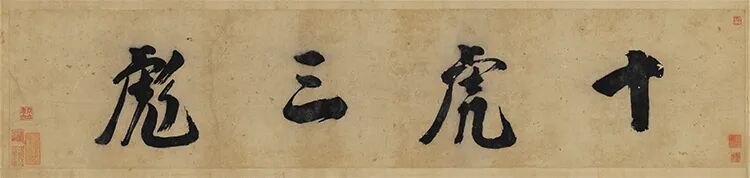 十虎三彪